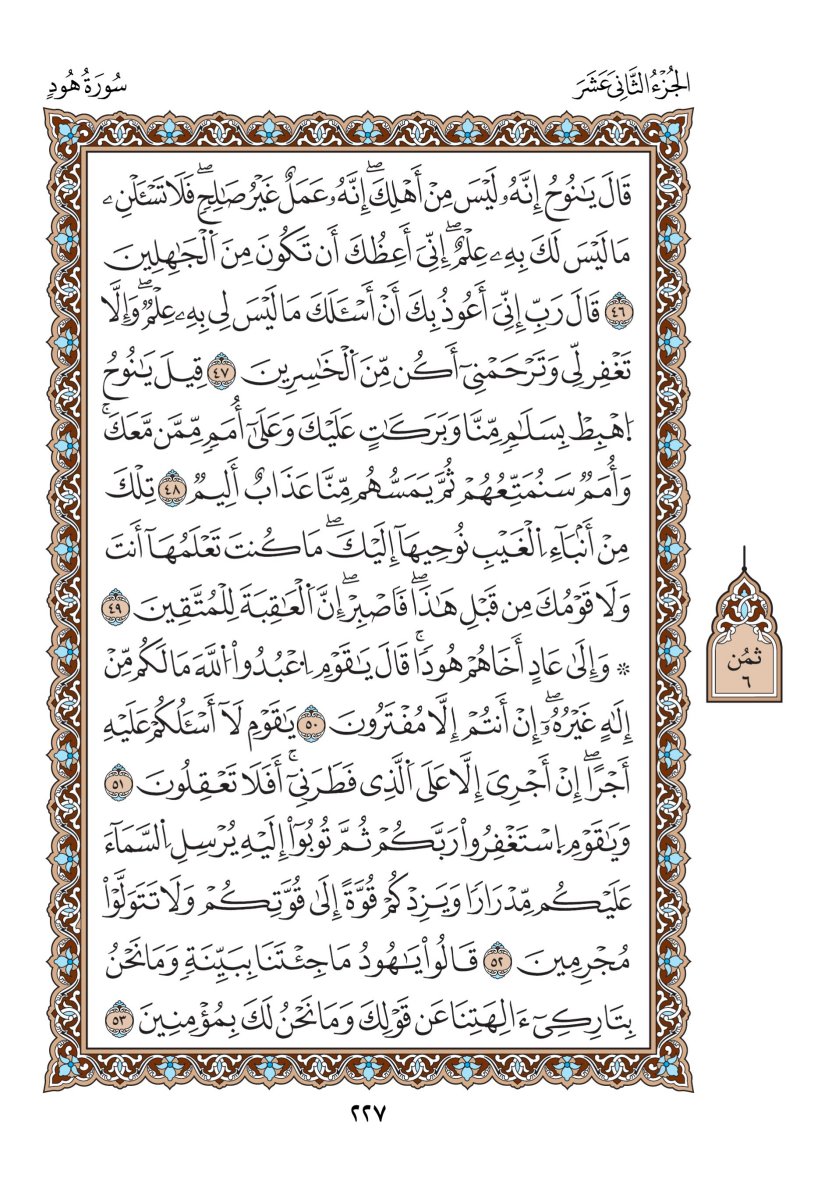 الجُزْءُ الثَّانِيَ عَشَرَ
سُورَةُ هُودٍ
قَالَ يَٰنُوحُ إِنَّهُۥ لَيْسَ مِنْ أَهْلِكَۖ إِنَّهُۥ عَمَلٌ غَيْرُ صَٰلِحٖۖ فَلَا تَسْـَٔلْنِۦ
مَا لَيْسَ لَكَ بِهِۦ عِلْمٌۖ إِنِّيٓ أَعِظُكَ أَن تَكُونَ مِنَ اَ۬لْجَٰهِلِينَ
٤٦ قَالَ رَبِّ إِنِّيٓ أَعُوذُ بِكَ أَنْ أَسْـَٔلَكَ مَا لَيْسَ لِي بِهِۦ عِلْمٞۖ وَإِلَّا
تَغْفِر لِّي وَتَرْحَمْنِيٓ أَكُن مِّنَ اَ۬لْخَٰسِرِينَ ٤٧ قِيلَ يَٰنُوحُ
اُ۪هْبِطْ بِسَلَٰمٖ مِّنَّا وَبَرَكَٰتٍ عَلَيْكَ وَعَلَىٰٓ أُمَمٖ مِّمَّن مَّعَكَۚ
وَأُمَمٞ سَنُمَتِّعُهُمْ ثُمَّ يَمَسُّهُم مِّنَّا عَذَابٌ أَلِيمٞ ٤٨ تِلْكَ
مِنْ أَنۢبَآءِ اِ۬لْغَيْبِ نُوحِيهَآ إِلَيْكَۖ مَا كُنتَ تَعْلَمُهَآ أَنتَ
وَلَا قَوْمُكَ مِن قَبْلِ هَٰذَاۖ فَاصْبِرْۖ إِنَّ اَ۬لْعَٰقِبَةَ لِلْمُتَّقِينَ ٤٩
۞ وَإِلَىٰ عَادٍ أَخَاهُمْ هُودٗاۚ قَالَ يَٰقَوْمِ اِ۟عْبُدُواْ اُ۬للَّهَ مَا لَكُم مِّنْ
إِلَٰهٍ غَيْرُهُۥٓۖ إِنْ أَنتُمْ إِلَّا مُفْتَرُونَ ٥٠ يَٰقَوْمِ لَآ أَسْـَٔلُكُمْ عَلَيْهِ
أَجْرًاۖ إِنْ أَجْرِيَ إِلَّا عَلَى اَ۬لَّذِي فَطَرَنِيٓۚ أَفَلَا تَعْقِلُونَ ٥١
وَيَٰقَوْمِ اِ۪سْتَغْفِرُواْ رَبَّكُمْ ثُمَّ تُوبُوٓاْ إِلَيْهِ يُرْسِلِ اِ۬لسَّمَآءَ
عَلَيْكُم مِّدْرَارٗا وَيَزِدْكُمْ قُوَّةً إِلَىٰ قُوَّتِكُمْ وَلَا تَتَوَلَّوْاْ
مُجْرِمِينَ ٥٢ قَالُواْ يَٰهُودُ مَا جِئْتَنَا بِبَيِّنَةٖ وَمَا نَحْنُ
بِتَارِكِيٓ ءَالِهَتِنَا عَن قَوْلِكَ وَمَا نَحْنُ لَكَ بِمُؤْمِنِينَ ٥٣
ثُمُن
٦
٢٢٧